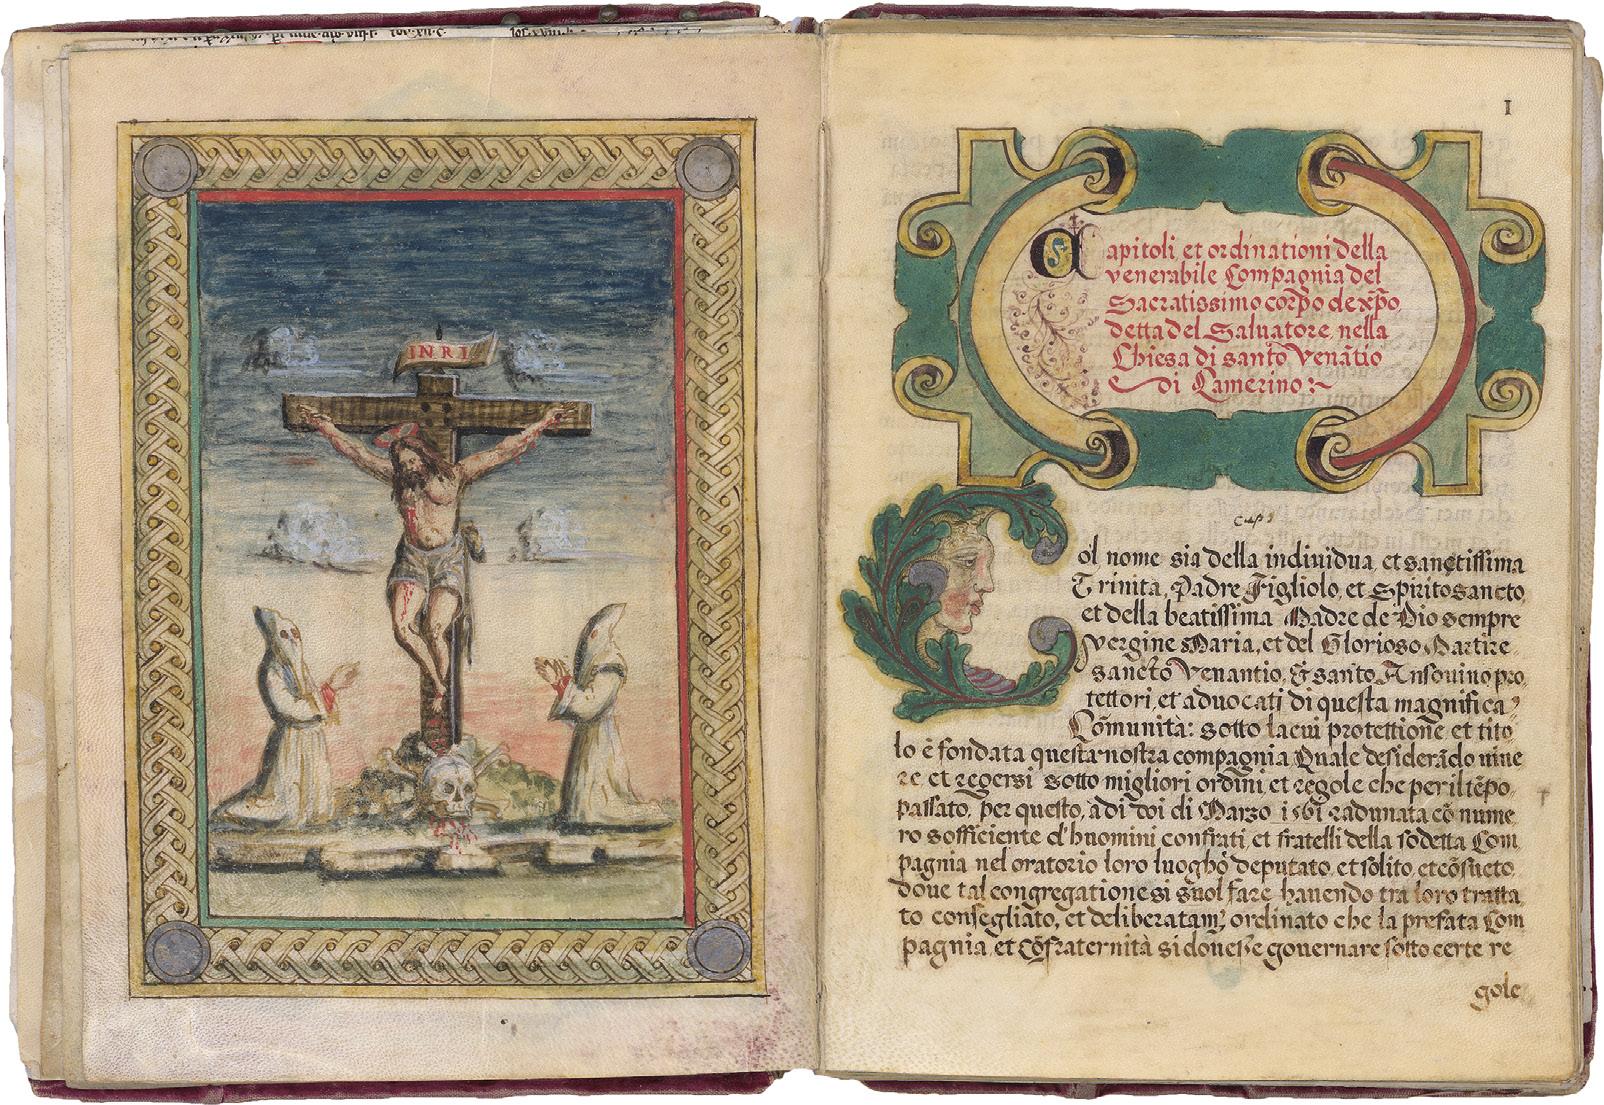 INRI
I
Capitoli et ordinationi della
venerabile Compagnia del
Sacratissimo corpo de xp̃o,
detta del Salvatore, nella
Chiesa di santo Venãtio
di Camerino:~
cap 1
Col nome sia della individua, et sanctissima
Trinità, Padre Figliolo, et Spirito sancto,
et della beatissima Madre de Dio sempre
Vergine Maria, et del Glorioso Martire
sancto Venantio, & santo Ansovino pro
tettori, et advocati di questa magnifica
Cõmunità: sotto la cui protettione, et tito
lo è fondata questa nostra compagnia Quale desiderãdo vive
re et regersi sotto migliori ordini et regole che per il tẽpo
passato, per questo, adi doi di Marzo 1561 radunata cõ nume
ro sofficiente d'huomini confrati, et fratelli della sodetta Com
pagnia nel oratorio loro luogho deputato, et solito, et cõsueto
dove tal congregatione si suol fare havendo tra loro tratta
to consegliato, et deliberatam̃, ordinato che la prefata Com
pagnia, et Cõfraternità si dovesse governare sotto certe re
gole